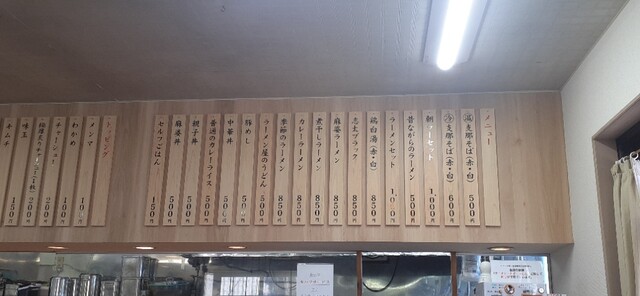 メニュー
㊂支那そば(赤・白) 500円
㊇支那そば(赤・白) 600円
朝ラーセット 1,000円
昔ながらのラーメン 500円
ラーメンセット
鶏白湯(赤・白) 850円
志太ブラック 850円
麻婆ラーメン 850円
煮干しラーメン 850円
カレーラーメン 850円
季節のラーメン 850円
ラーメン屋のうどん 500円
豚めし 500円
中華丼 500円
普通のカレーライス 500円
親子丼 500円
麻婆丼 500円
セルフごはん 150円
トッピング
メンマ 100円
わかめ 100円
チャーシュー 200円
味玉 100円
キムチ 150円